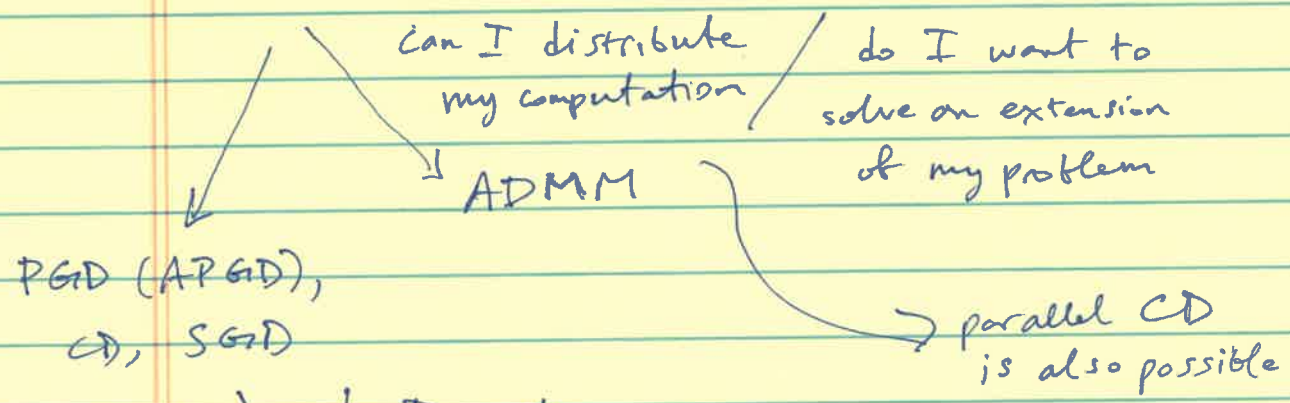 can I distribute
my computation
do I want to
solve an extension
of my problem
ADMM
PGD (APGD),
CD, SGD
parallel CD
is also possible